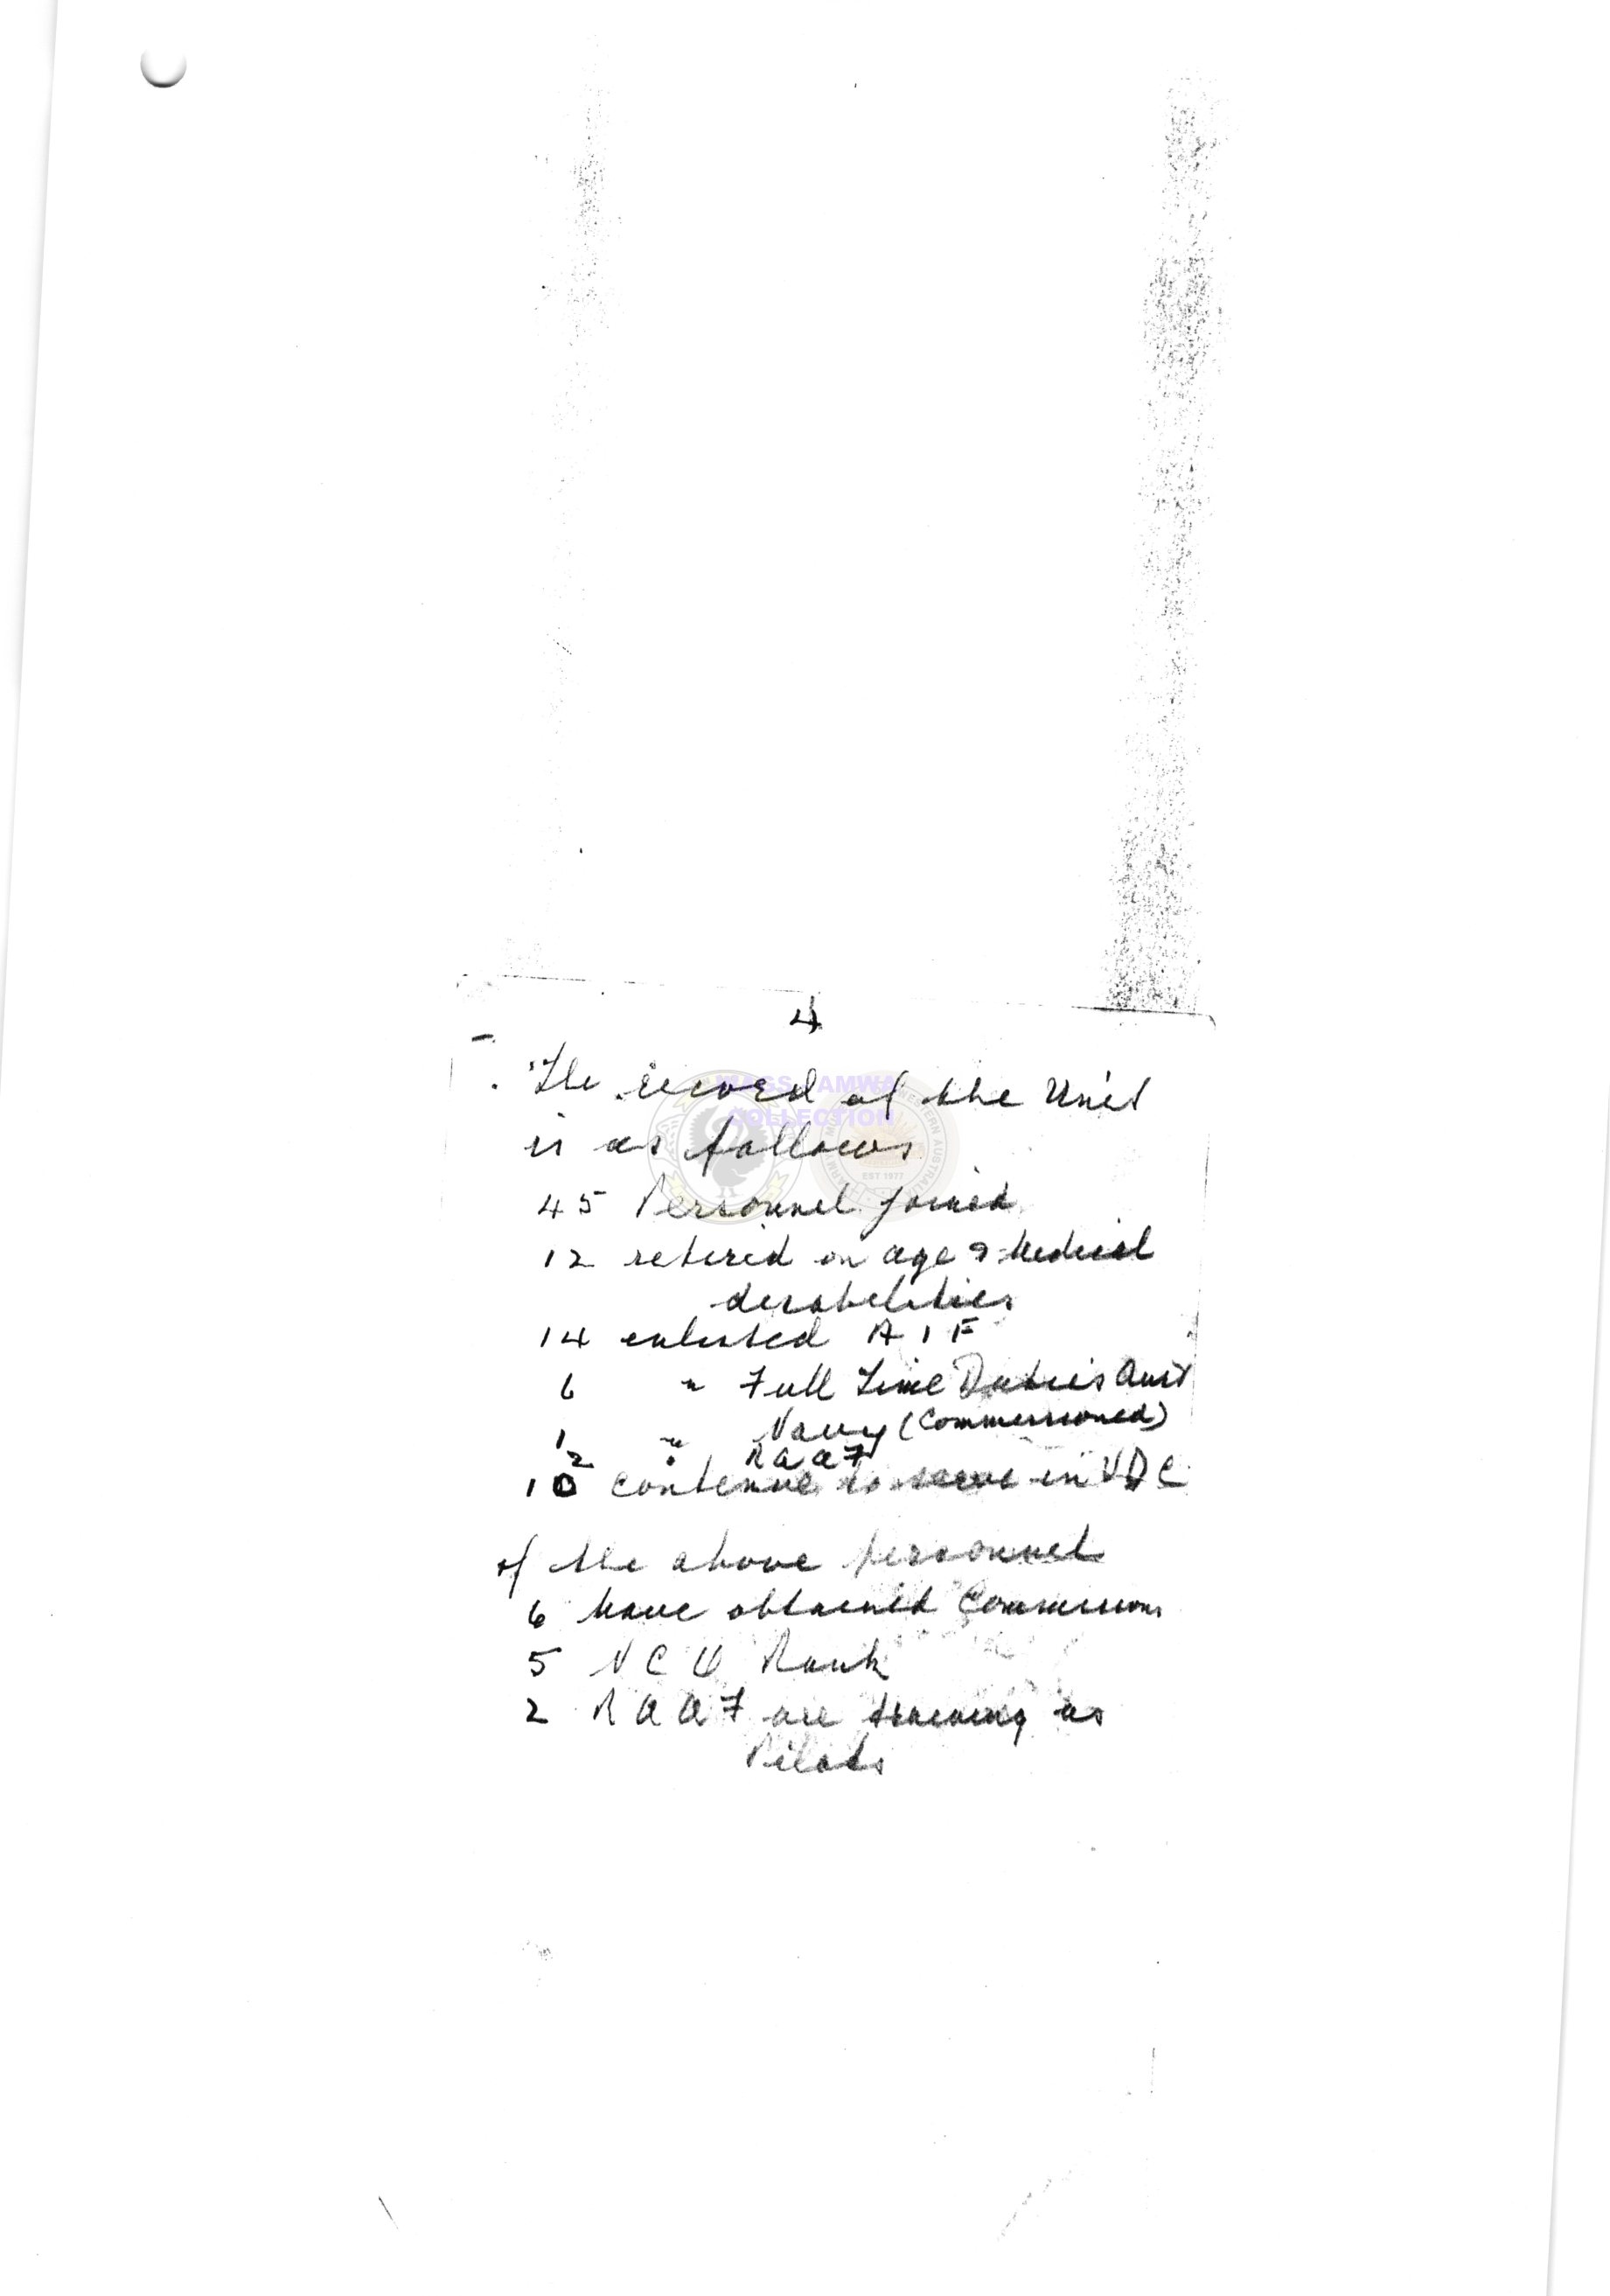 4
The record of the Unit
is as follows
45 Personnel joined
12 retired on age & Medical
disabilities
14 enlisted A I F
6 " Full Time Duties Aust
1 " Navy (Commissioned)
2 " RAAF
10 continue to serve in VDC
of the above personnel
6 have obtained Commissions
5 NCO Rank
2 RAAF are training as
Pilots
MAGS AMWA
COLLECTION
WESTERN AUSTRALIA
EST 1977